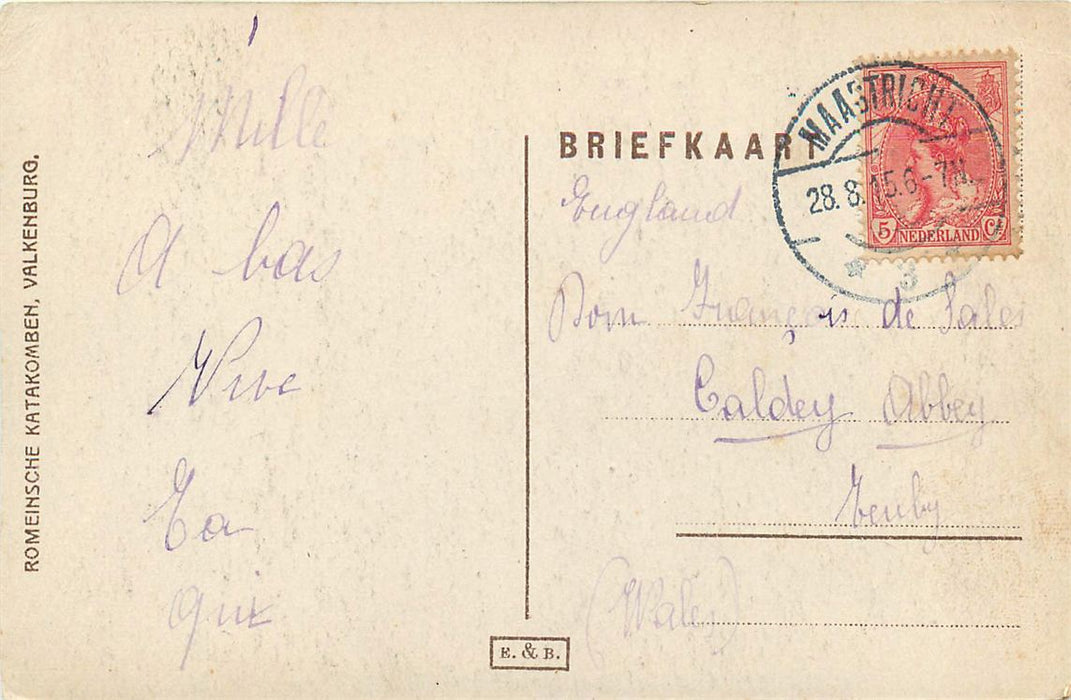 ROMEINSCHE KATAKOMBEN, VALKENBURG.
Mille
A bas
Vive
Ea
qui
BRIEFKAART
MAASTRICHT
28.8.15.6-7N.
3
5 NEDERLAND Ct
England
Dom François de Sales
Caldey Abbey
Tenby
(Wales)
E. & B.